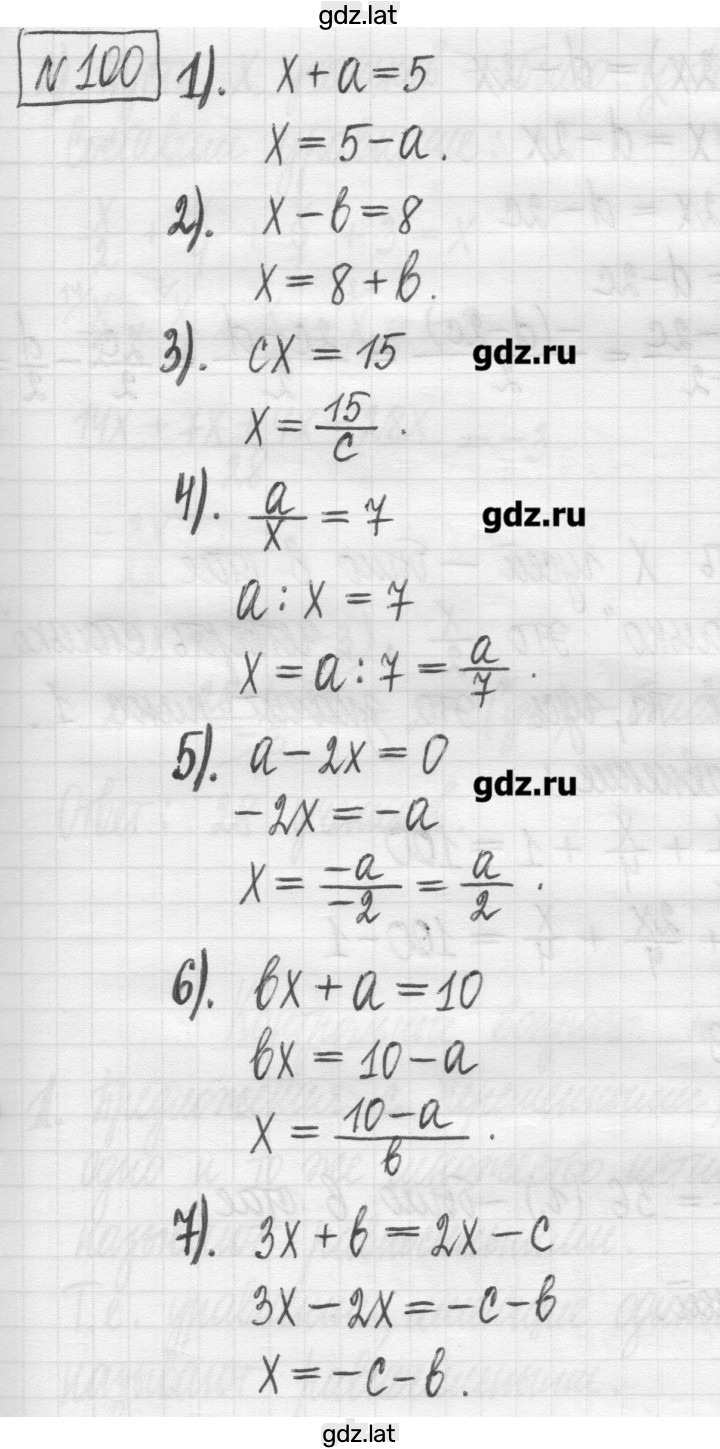 gdz.lat
№ 100 1). x + a = 5
x = 5 - a.
2). x - b = 8
x = 8 + b.
3). cx = 15
gdz.ru
x = 15/c.
4). a/x = 7
gdz.ru
a : x = 7
x = a : 7 = a/7.
5). a - 2x = 0
gdz.ru
-2x = -a
x = -a/-2 = a/2.
6). bx + a = 10
bx = 10 - a
x = 10 - a/b.
7). 3x + b = 2x - c
3x - 2x = -c - b
x = -c - b.
gdz.lat